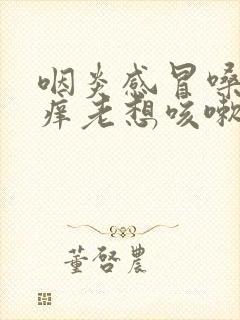 咽炎感冒嗓
痒老想咳嗽
董启农